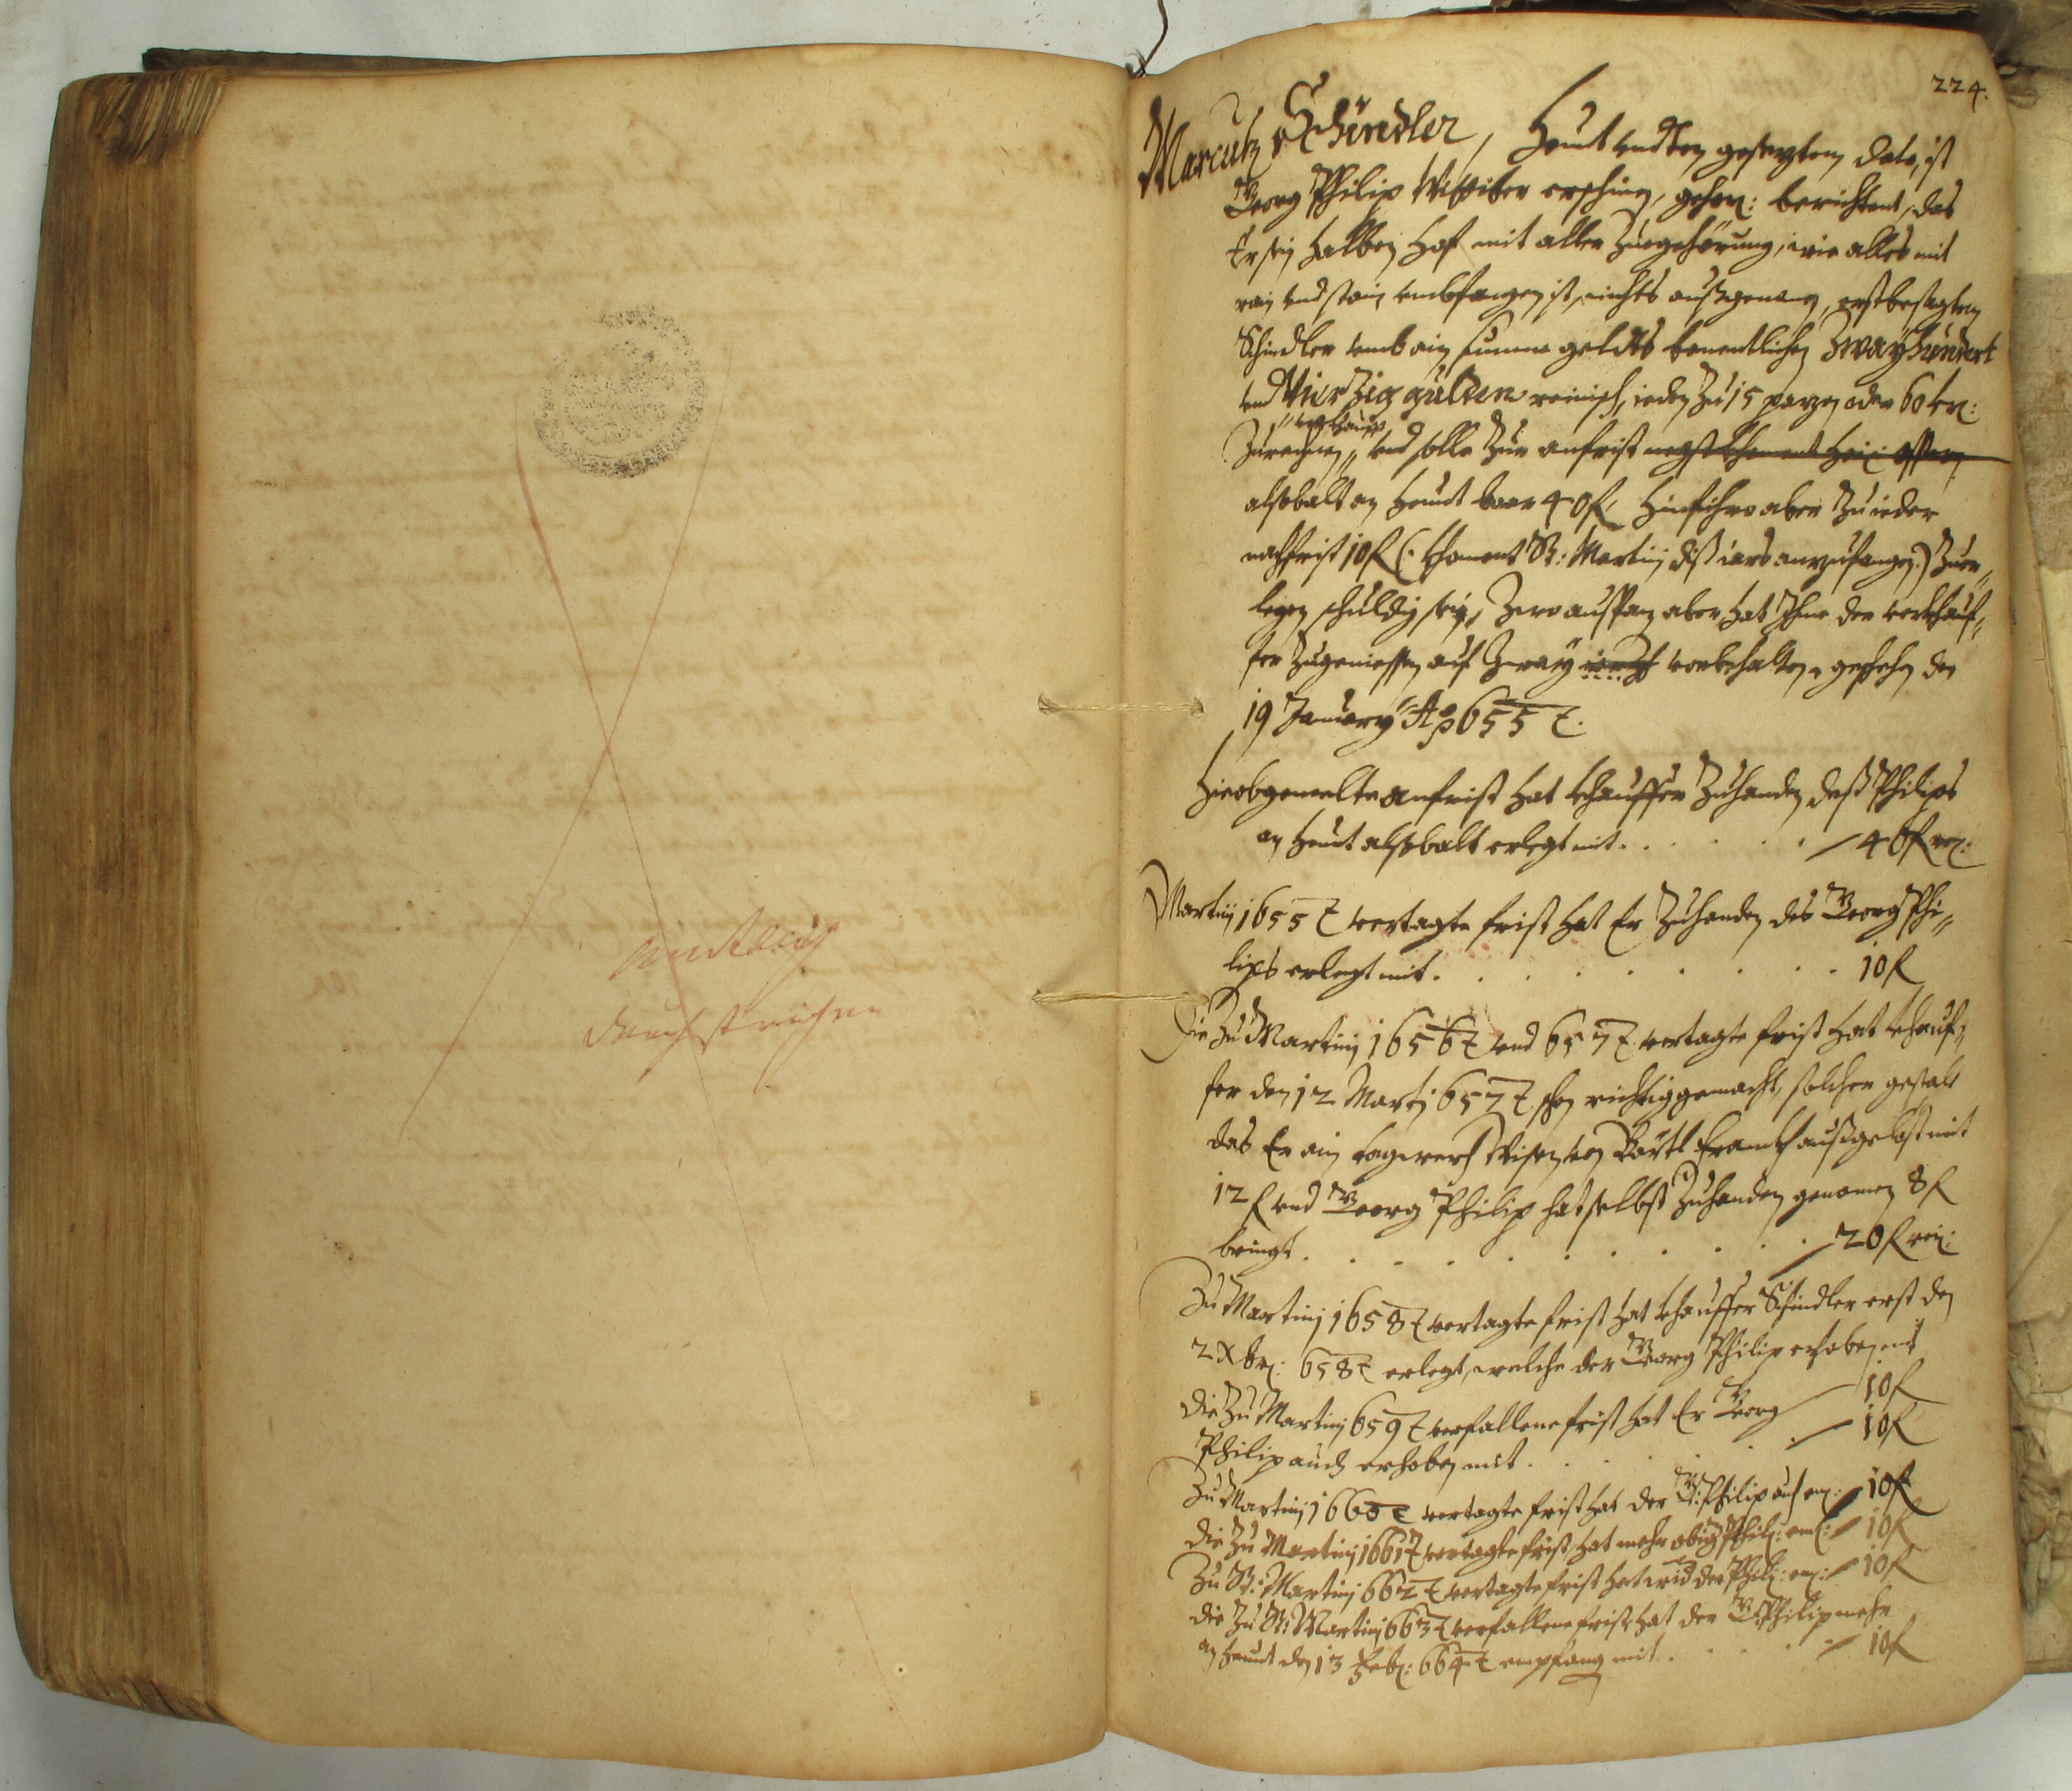 durchstrichen
224.
Marcus Schindler, Heut undten gesezten dato, ist
Georg Philip erschinen, gehor: berichtent, das
Er sein halben Hof mit aller Zuegehörung, wie alles mit
rain und stain umbfangen ist, nichts außgenomen, erstbesagten
Schindler umb ain summa geldts benentlichen Zwayhundert
und Vierzig gulden reinisch, ieden zu 15 pazen oder 60 kr:
verkhaufft
Zurechnen, und solle Zur anfrist negst khoment
alsobalt an heut baar 40 fl hinfihro aber Zu ieder
nachfrist 10 fl (: khoment St: Martinj diß iars anzufangen:) Zuer,,
legen schuldig sein, aber hat Ihme der verkhauf,,
fer Zugeniessen auf Zway vorbehalten, geschehen den
19 January Ao 655 t.
Hieobgemelte anfrist hat khauffer Zuhanden deß Philips
an heut alsobalt erlegt mit . . . . . . 40 fl rn:
Martinj 1655 t vertagte frist hat Er Zuhanden des Georg Phi,,
lips erlegt mit . . . . . . . . 10 fl
Die Zu Martinj 1656 t und 657 t vertagte frist hat khauf,,
fer den 12 Martj 657 t schon richtig gemacht, solcher gestalt
das Er ain tagwerch Wisen von außgelöst mit
12 fl und Georg Philip hat selbst Zuhanden genomen 8 fl
bringt . . . . . . . . . 20 fl rein:
Zu Martinj 1658 t vertagte frist hat khauffer Schindler erst den
2 Xbr: 658 t erlegt, welche der Georg Philip erhoben mit
10 fl
Die Zu Martinj 659 t verfallene frist hat Er Georg
Philip auch erhoben mit . . . . . 10 fl
Zu Martinj 1660 t vertagte frist hat der G: Philip auch em: 10 fl
Die Zu Martinj 1661 t vertagte frist hat mehr obiger Phil: em: 10 fl
Zu St: Martinj 662 t vertagte frist hat wid der Phil: em: 10 fl
Die Zu St: Martinj 663 t verfallene frist hat der G: Philip mehr
an heut den 13 Febr: 664 t empfang mit . . . . 10 fl